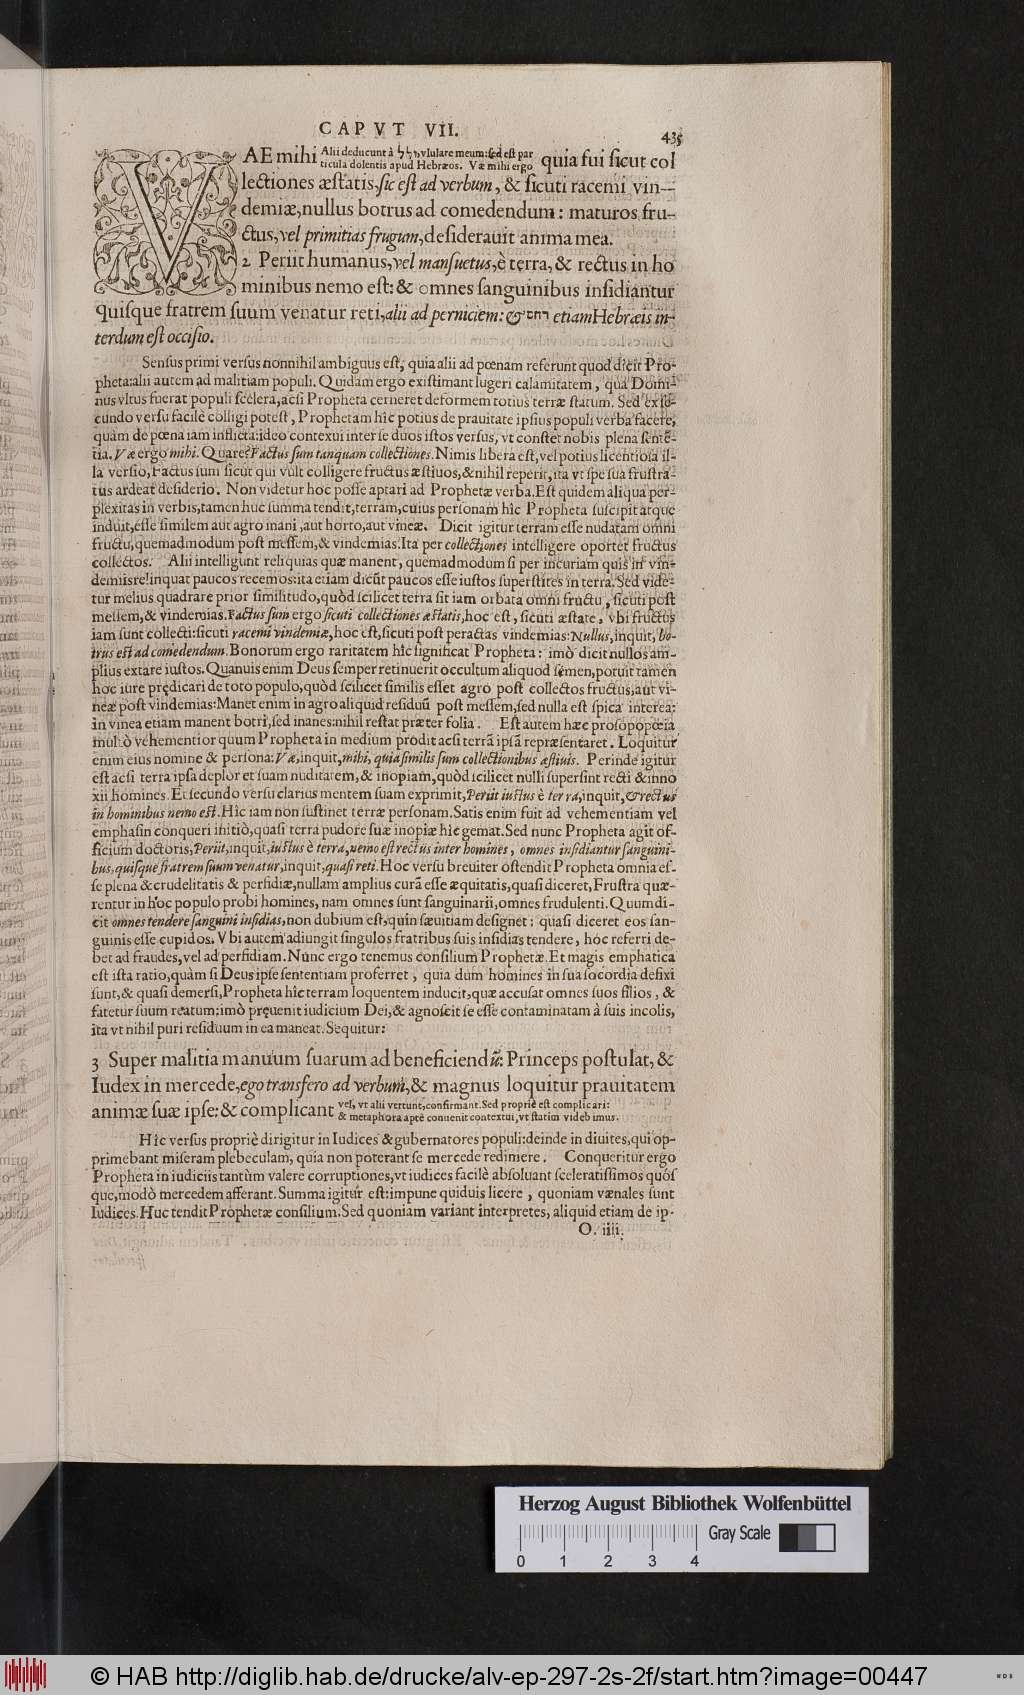 CAPVT VII.
435
VAE mihi Alii deducunt à ילל, vlulare meum: sed est par
ticula dolentis apud Hebræos. Væ mihi ergo quia fui sicut col
lectiones æstatis, sic est ad verbum, & sicuti racemi vin-
demiæ, nullus botrus ad comedendum: maturos fru-
ctus, vel primitias frugum, desiderauit anima mea.
2 Periit humanus, vel mansuetus, è terra, & rectus in ho
minibus nemo est: & omnes sanguinibus insidiantur
quisque fratrem suum venatur reti, alii ad perniciem: & חרם etiam Hebræis in-
terdum est occisio.
Sensus primi versus nonnihil ambiguus est, quia alii ad pœnam referunt quod dicit Pro-
pheta: alii autem ad malitiam populi. Quidam ergo existimant lugeri calamitatem, qua Domi-
nus vltus fuerat populi scelera, acsi Propheta cerneret deformem totius terræ statum. Sed ex se-
cundo versu facilè colligi potest, Prophetam hîc potius de prauitate ipsius populi verba facere,
quàm de pœna iam inflicta: ideo contexui inter se duos istos versus, vt constet nobis plena sentē-
tia. Væ ergo mihi. Quare? Factus sum tanquam collectiones. Nimis libera est, vel potius licentiosa il-
la versio, Factus sum sicut qui vult colligere fructus æstiuos, & nihil reperit, ita vt spe sua frustra-
tus ardeat desiderio. Non videtur hoc posse aptari ad Prophetæ verba. Est quidem aliqua per-
plexitas in verbis, tamen huc summa tendit, terram, cuius personam hîc Propheta suscipit atque
induit, esse similem aut agro inani, aut horto, aut vineæ. Dicit igitur terram esse nudatam omni
fructu, quemadmodum post messem, & vindemias. Ita per collectiones intelligere oportet fructus
collectos. Alii intelligunt reliquias quæ manent, quemadmodum si per incuriam quis in vin-
demiis reliquat paucos recemos: ita etiam dicūt paucos esse iustos superstites in terra. Sed vide-
tur melius quadrare prior similitudo, quòd scilicet terra sit iam orbata omni fructu, sicuti post
messem, & vindemias. Factus sum ergo sicuti collectiones æstatis, hoc est, sicuti æstate, vbi fructus
iam sunt collecti: sicuti racemi vindemiæ, hoc est, sicuti post peractas vindemias: Nullus, inquit, bo-
trus est ad comedendum. Bonorum ergo raritatem hîc significat Propheta: imò dicit nullos am-
plius extare iustos. Quanuis enim Deus semper retinuerit occultum aliquod semen, potuit tamen
hoc iure prędicari de toto populo, quòd scilicet similis esset agro post collectos fructus, aut vi-
neæ post vindemias: Manet enim in agro aliquid residuū post messem, sed nulla est spica interea:
in vinea etiam manent botri, sed inanes: nihil restat præter folia. Est autem hæc prosopopœia
multò vehementior quum Propheta in medium prodit acsi terrā ipsā repræsentaret. Loquitur
enim eius nomine & persona: Væ, inquit, mihi, quia similis sum collectionibus æstiuis. Perinde igitur
est acsi terra ipsa deploret suam nuditatem, & inopiam, quòd scilicet nulli supersint recti & inno
xii homines. Et secundo versu clarius mentem suam exprimit, Periit iustus è terra, inquit, & rectus
in hominibus nemo est. Hîc iam non sustinet terræ personam. Satis enim fuit ad vehementiam vel
emphasin conqueri initiò, quasi terra pudore suæ inopiæ hîc gemat. Sed nunc Propheta agit of-
ficium doctoris, Periit, inquit, iustus è terra, nemo est rectus inter homines, omnes insidiantur sanguini-
bus, quisque fratrem suum venatur, inquit, quasi reti. Hoc versu breuiter ostendit Propheta omnia es-
se plena & crudelitatis & perfidiæ, nullam amplius curā esse æquitatis, quasi diceret, Frustra quæ-
rentur in hoc populo probi homines, nam omnes sunt sanguinarii, omnes frudulenti. Quum di-
cit omnes tendere sanguini insidias, non dubium est, quin sæuitiam designet: quasi diceret eos san-
guinis esse cupidos. Vbi autem adiungit singulos fratribus suis insidias tendere, hoc referri de-
bet ad fraudes, vel ad perfidiam. Nunc ergo tenemus consilium Prophetæ. Et magis emphatica
est ista ratio, quàm si Deus ipse sententiam proferret, quia dum homines in sua socordia defixi
sunt, & quasi demersi, Propheta hîc terram loquentem inducit, quæ accusat omnes suos filios, &
fatetur suum reatum: imò pręuenit iudicium Dei, & agnoscit se esse contaminatam à suis incolis,
ita vt nihil puri residuum in ea maneat. Sequitur:
3 Super malitia manuum suarum ad beneficiendū: Princeps postulat, &
Iudex in mercede, ego transfero ad verbum, & magnus loquitur prauitatem
animæ suæ ipse: & complicant vel, vt alii vertunt, confirmant. Sed propriè est complicari:
& metaphora aptè conuenit contextui, vt statim videbimus.
Hîc versus propriè dirigitur in Iudices & gubernatores populi: deinde in diuites, qui op-
primebant miseram plebeculam, quia non poterant se mercede redimere. Conqueritur ergo
Propheta in iudiciis tantùm valere corruptiones, vt iudices facilè absoluant sceleratissimos quos
que, modò mercedem afferant. Summa igitur est: impune quiduis licere, quoniam vænales sunt
Iudices. Huc tendit Prophetæ consilium. Sed quoniam variant interpretes, aliquid etiam de ip-
O. iiii.
Herzog August Bibliothek Wolfenbüttel
Gray Scale
0 1 2 3 4
© HAB http://diglib.hab.de/drucke/alv-ep-297-2s-2f/start.htm?image=00447
WDB